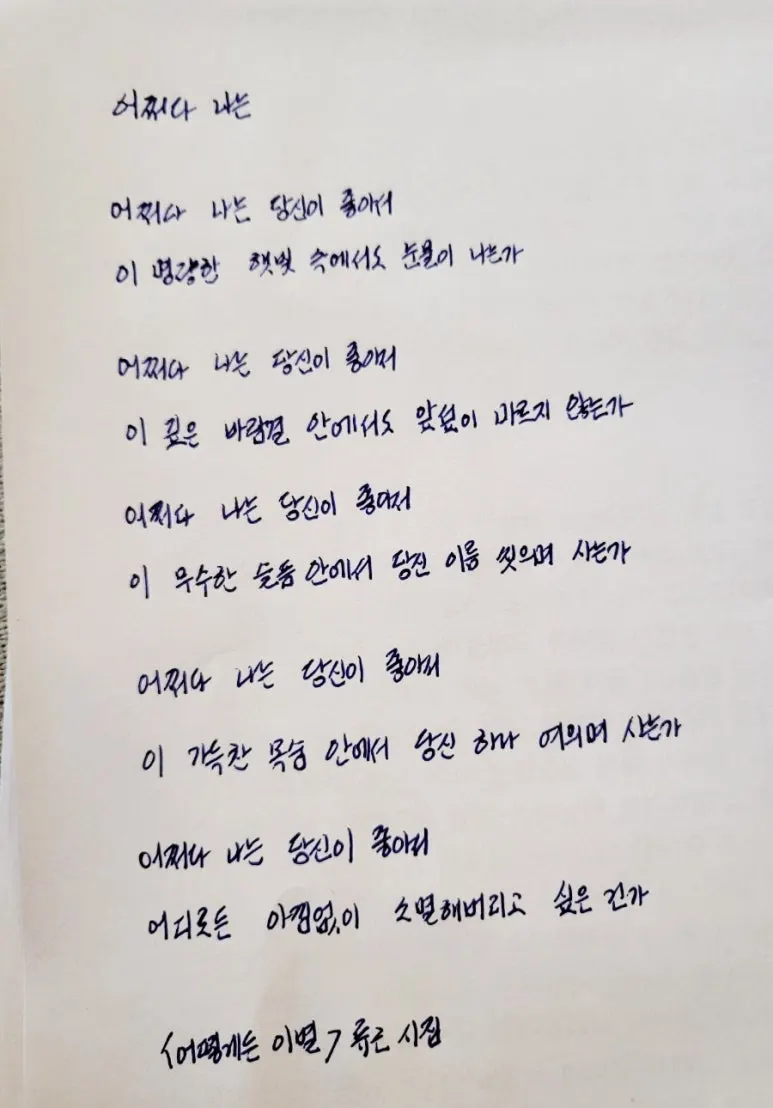 어쩌다 나는
어쩌다 나는 당신이 좋아서
이 명랑한 햇빛 속에서도 눈물이 나는가
어쩌다 나는 당신이 좋아서
이 깊은 바람결 안에서도 앞섶이 마르지 않는가
어쩌다 나는 당신이 좋아서
이 무수한 슬픔 안에서 당신 이름 씻으며 사는가
어쩌다 나는 당신이 좋아서
이 가득찬 목숨 안에서 당신 하나 여의며 사는가
어쩌다 나는 당신이 좋아서
어디로든 아낌없이 소멸해버리고 싶은 건가
<어떻게든 이별> 류근 시집